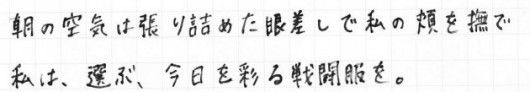 朝の空気は張り詰めた眼差しで私の頬を撫で
私は、選ぶ、今日を彩る戦闘服を。